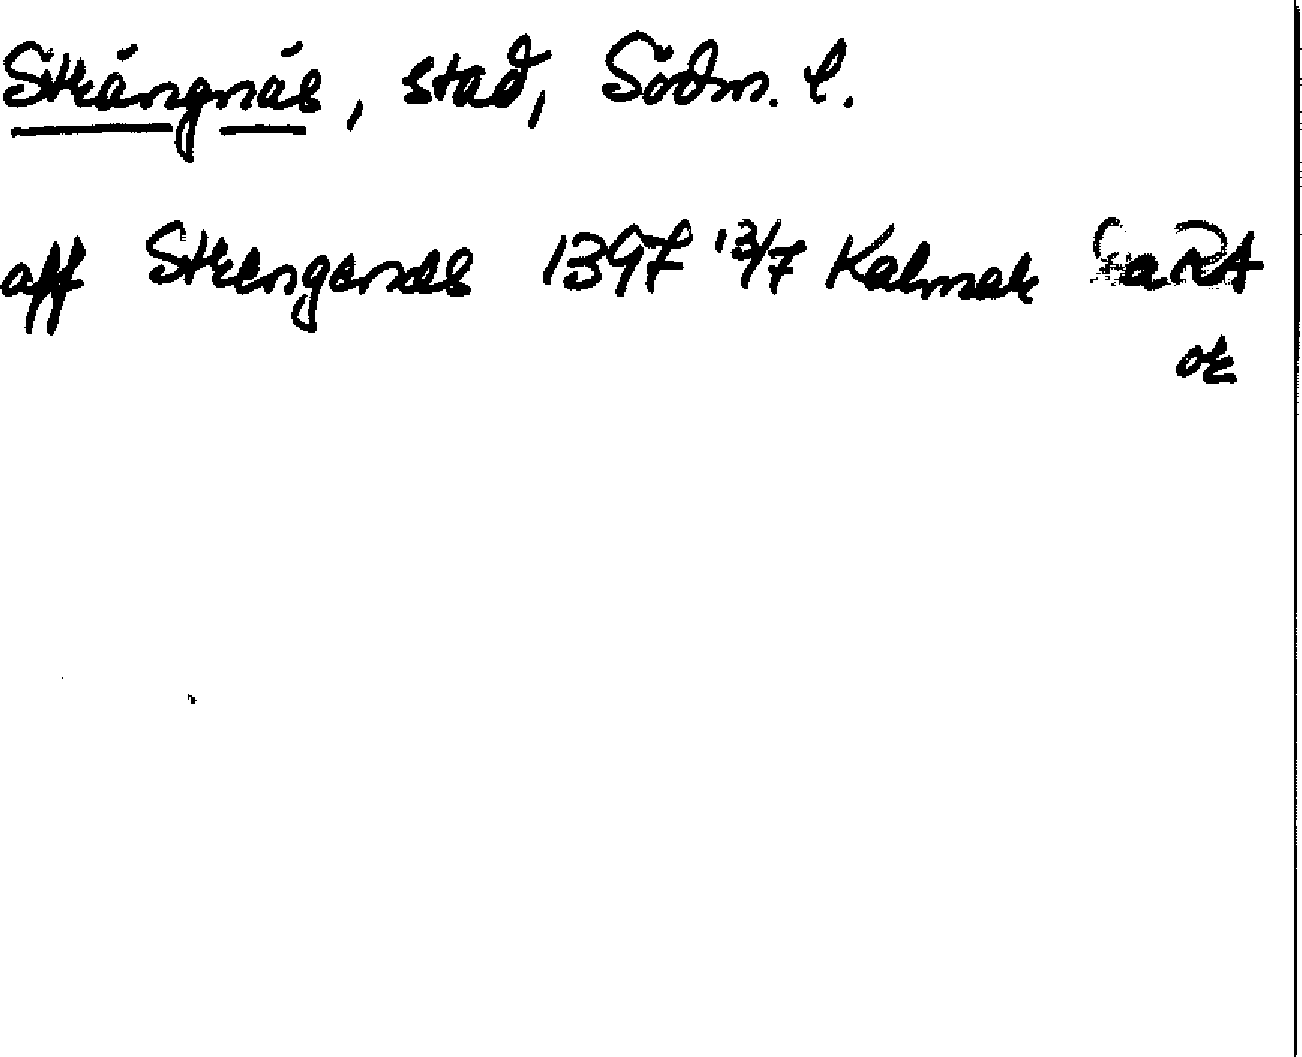 Strängnäs, stad, Södm. l.
aff Strengenæs 1397 13/7 Kalmar RA
or